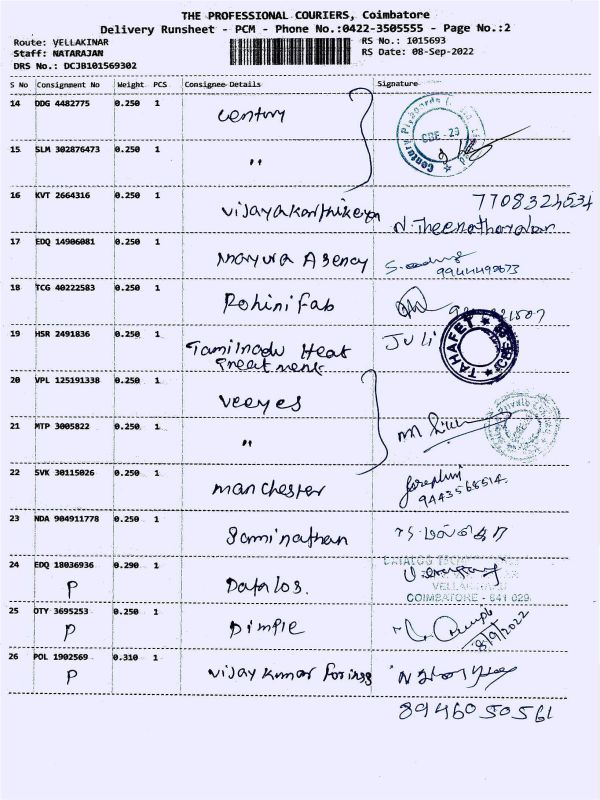 THE PROFESSIONAL COURIERS, Coimbatore
Delivery Runsheet - PCM - Phone No.:0422-3505555 - Page No.:2
Route: VELLAKINAR
RS No.: 1015693
Staff: NATARAJAN
RS Date: 08-Sep-2022
DRS No.: DCJB101569302
S No Consignment No Weight PCS Consignee Details Signature
14 DDG 4482775 0.250 1 century
CBE - 29
15 SLM 302876473 0.250 1 "
16 KVT 2664316 0.250 1 vijayakarthikeyan
N. Theenathayalan
17 EDQ 14906081 0.250 1 mayura Agency
18 TCG 40222583 0.250 1 Rohini Fab
19 HSR 2491836 0.250 1 Tamilnadu Heat Juli
Treatment
TAHAFET
20 VPL 125191338 0.250 1 veeyes
21 MTP 3005822 0.250 1 "
22 SVK 30115026 0.250 1 manchester
9443568514
23 NDA 904911778 0.250 1 Saminathan
24 EDQ 18036936 0.290 1 Datalos.
P
VELLAKINAR
COIMBATORE - 641 029
25 OTY 3695253 0.250 1 Dimple
P
8/9/2022
26 POL 1902569 0.310 1 vijay kumar forings
P
8946050561